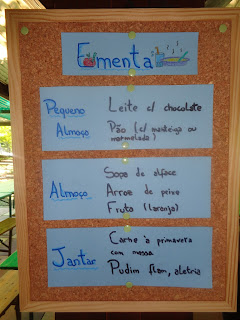 Ementa
Pequeno
Almoço
Leite c/ chocolate
Pão (c/ manteiga ou
marmelada)
Almoço
Sopa de alface
Arroz de peixe
Fruta (laranja)
Jantar
Carne à primavera
com massa
Pudim flam, aletria